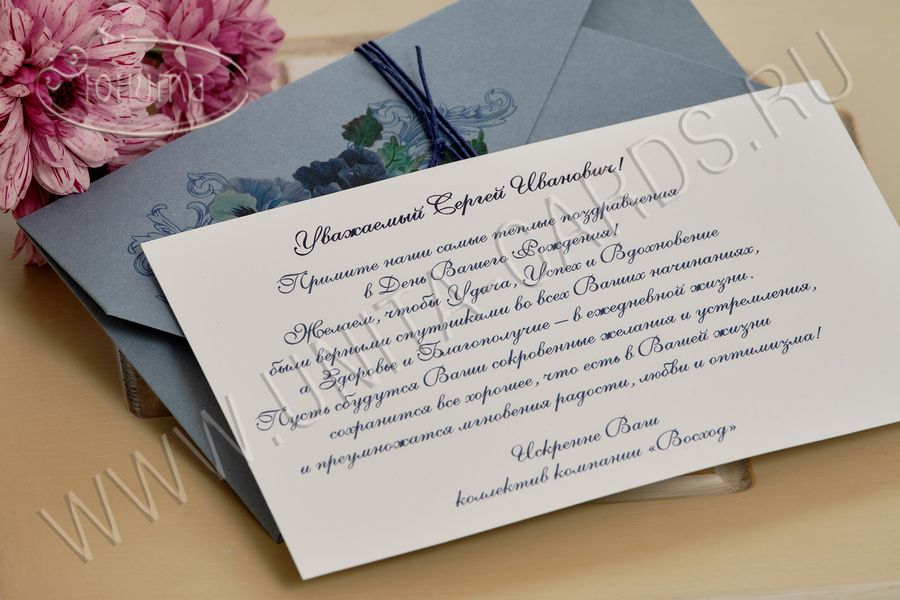 Юнита
Уважаемый Сергей Иванович!
Примите наши самые теплые поздравления
в День Вашего Рождения!
Желаем, чтобы Удача, Успех и Вдохновение
были верными спутниками во всех Ваших начинаниях,
а Здоровье и Благополучие – в ежедневной жизни.
Пусть сбудутся Ваши сокровенные желания и устремления,
сохранится все хорошее, что есть в Вашей жизни
и преумножатся мгновения радости, любви и оптимизма!
Искренне Ваш
коллектив компании «Восход»
WWW.UNITA-CARDS.RU